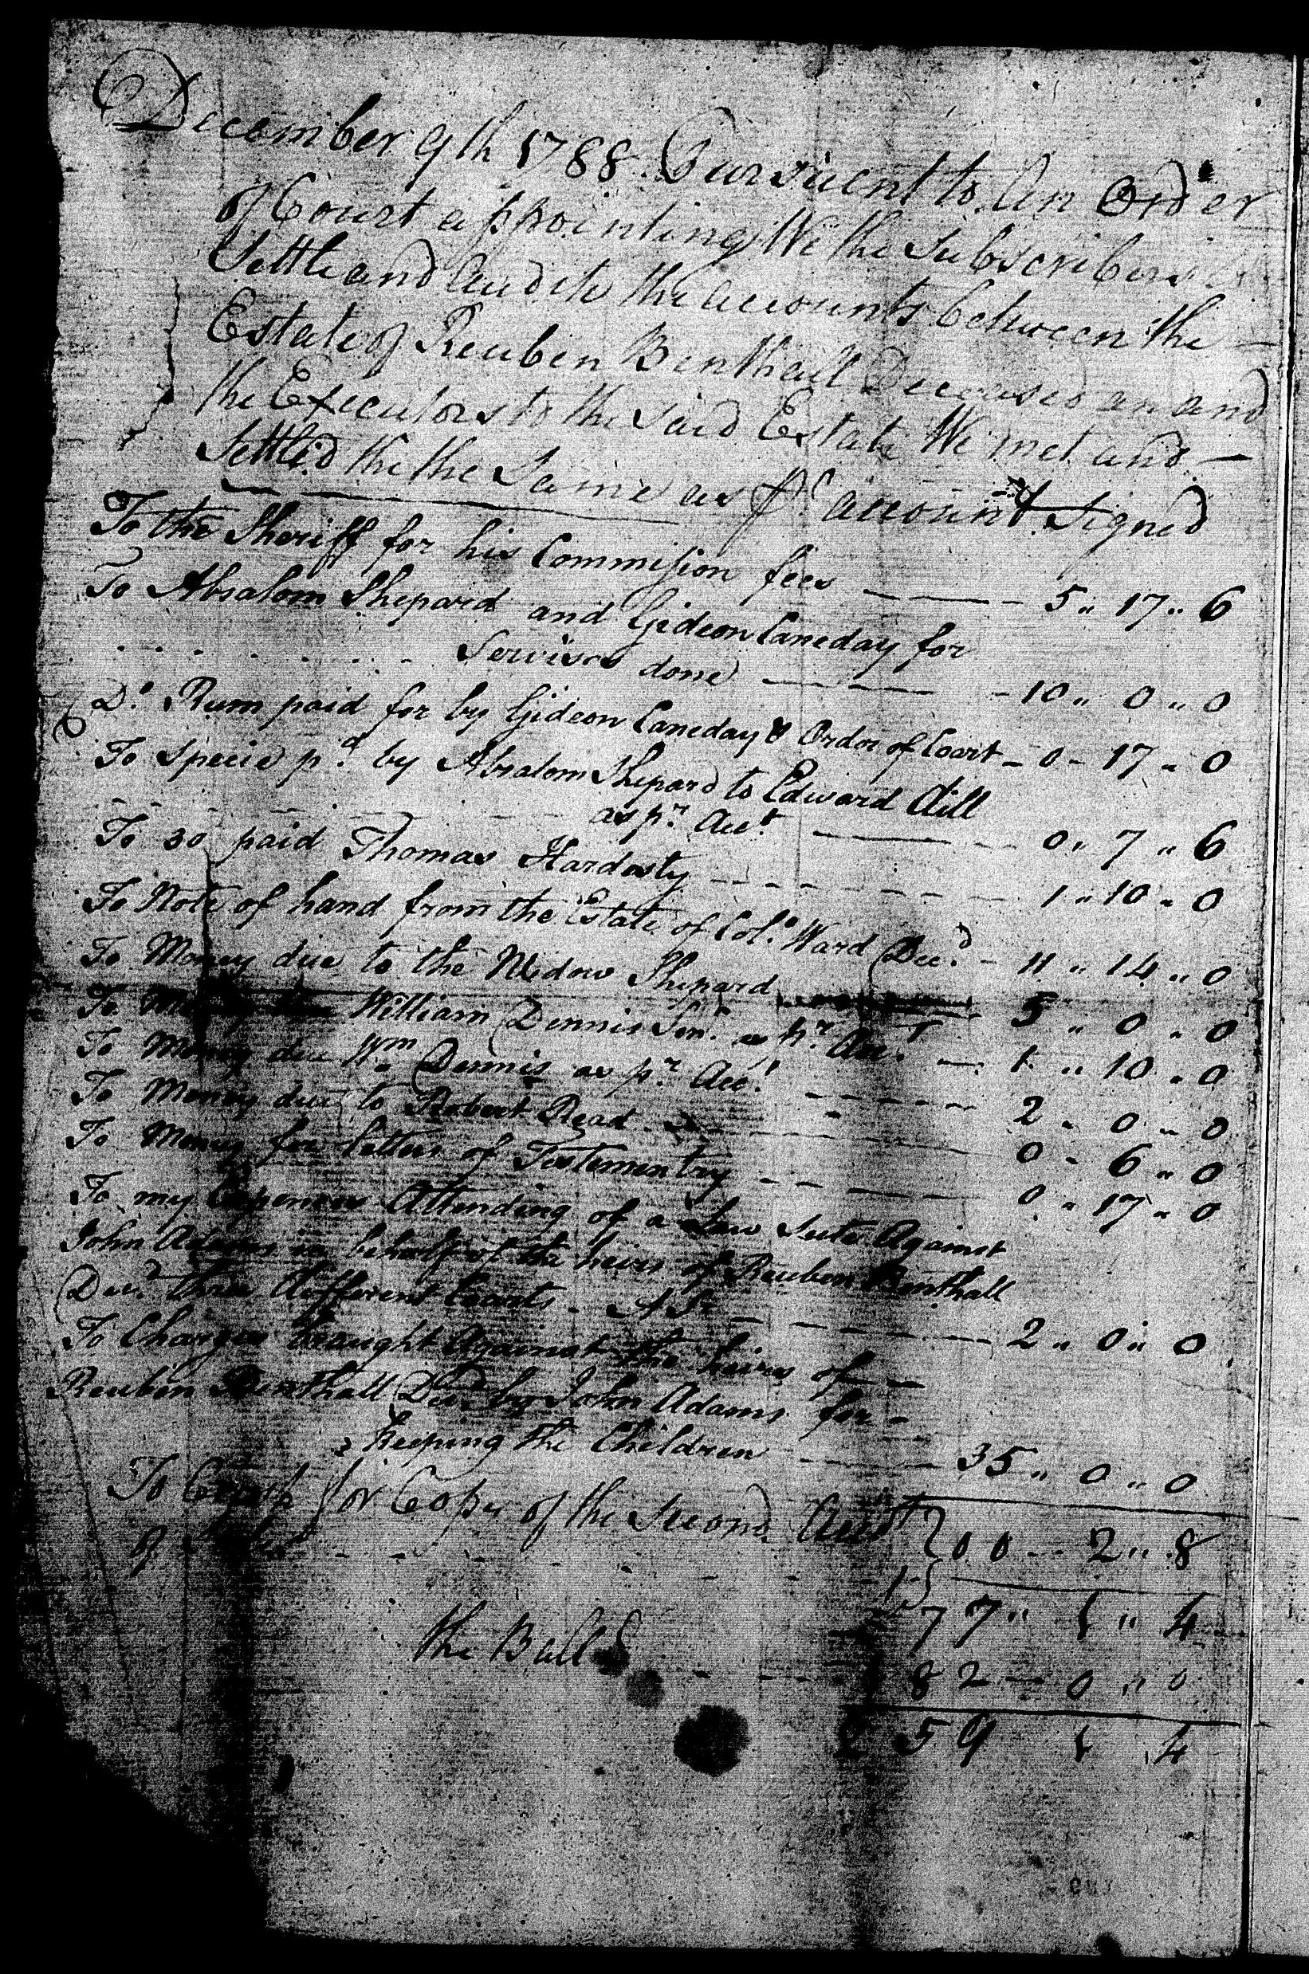 December 9th 1788 Pursuent to An Order
of Court appointing We the Subscribers
Settle and Audite the accounts between the —
Estate of Reuben Benthall Deceased an and
the Executors to the said Estate We met and —
Settled the the Same as pr account Signed
To the Sheriff for his Commission fees — — — 5 " 17 " 6
To Absalom Shepard and Gideon Caneday for
Servises done — — — 10 " 0 " 0
Do. Rum paid for by Gideon Caneday & Order of Court - 0 - 17 " 0
To Specie pd. by Absalom Shepard to Edward Aill
as pr. Acct. — — 0 " 7 " 6
To so paid Thomas Hardesty — — — 1 " 10 " 0
To Note of hand from the Estate of Col. Ward Decd. - 11 " 14 " 0
To Money due to the Widow Shepard 5 " 0 " 0
To William Dennis Senr. as pr. Acct. — 1 " 10 " 0
To Money due Wm Dennis as pr. Acct. — — 2 " 0 " 0
To Money due to Robert Read — — 0 " 6 " 0
To Money for letters of Testementry — — — 0 " 17 " 0
To my Expences Attending of a Law Sute Against
John Adams in behalf of the heirs of Reuben Benthall
Decd. three different Courts - — — — 2 " 0 " 0
To Charges brought Against the heirs of —
Reuben Benthall Decd by John Adams for -
keeping the Children — — — 35 " 0 " 0
To for Copy of the Second Acct
of 00 — 2 " 8
77 " 1 " 4
the Ball 82 — 0 " 0
59 1 4